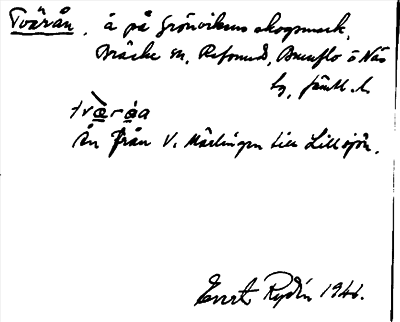 Tvärån, å på Grönvikens skogsmark,
Bräcke sn, Refsunds, Brunflo o Näs
tg, Jämtl. l.
tvæ̀råa
Ån från V. Märlingen till Lillsjön.
Ernst Rydin 1946.